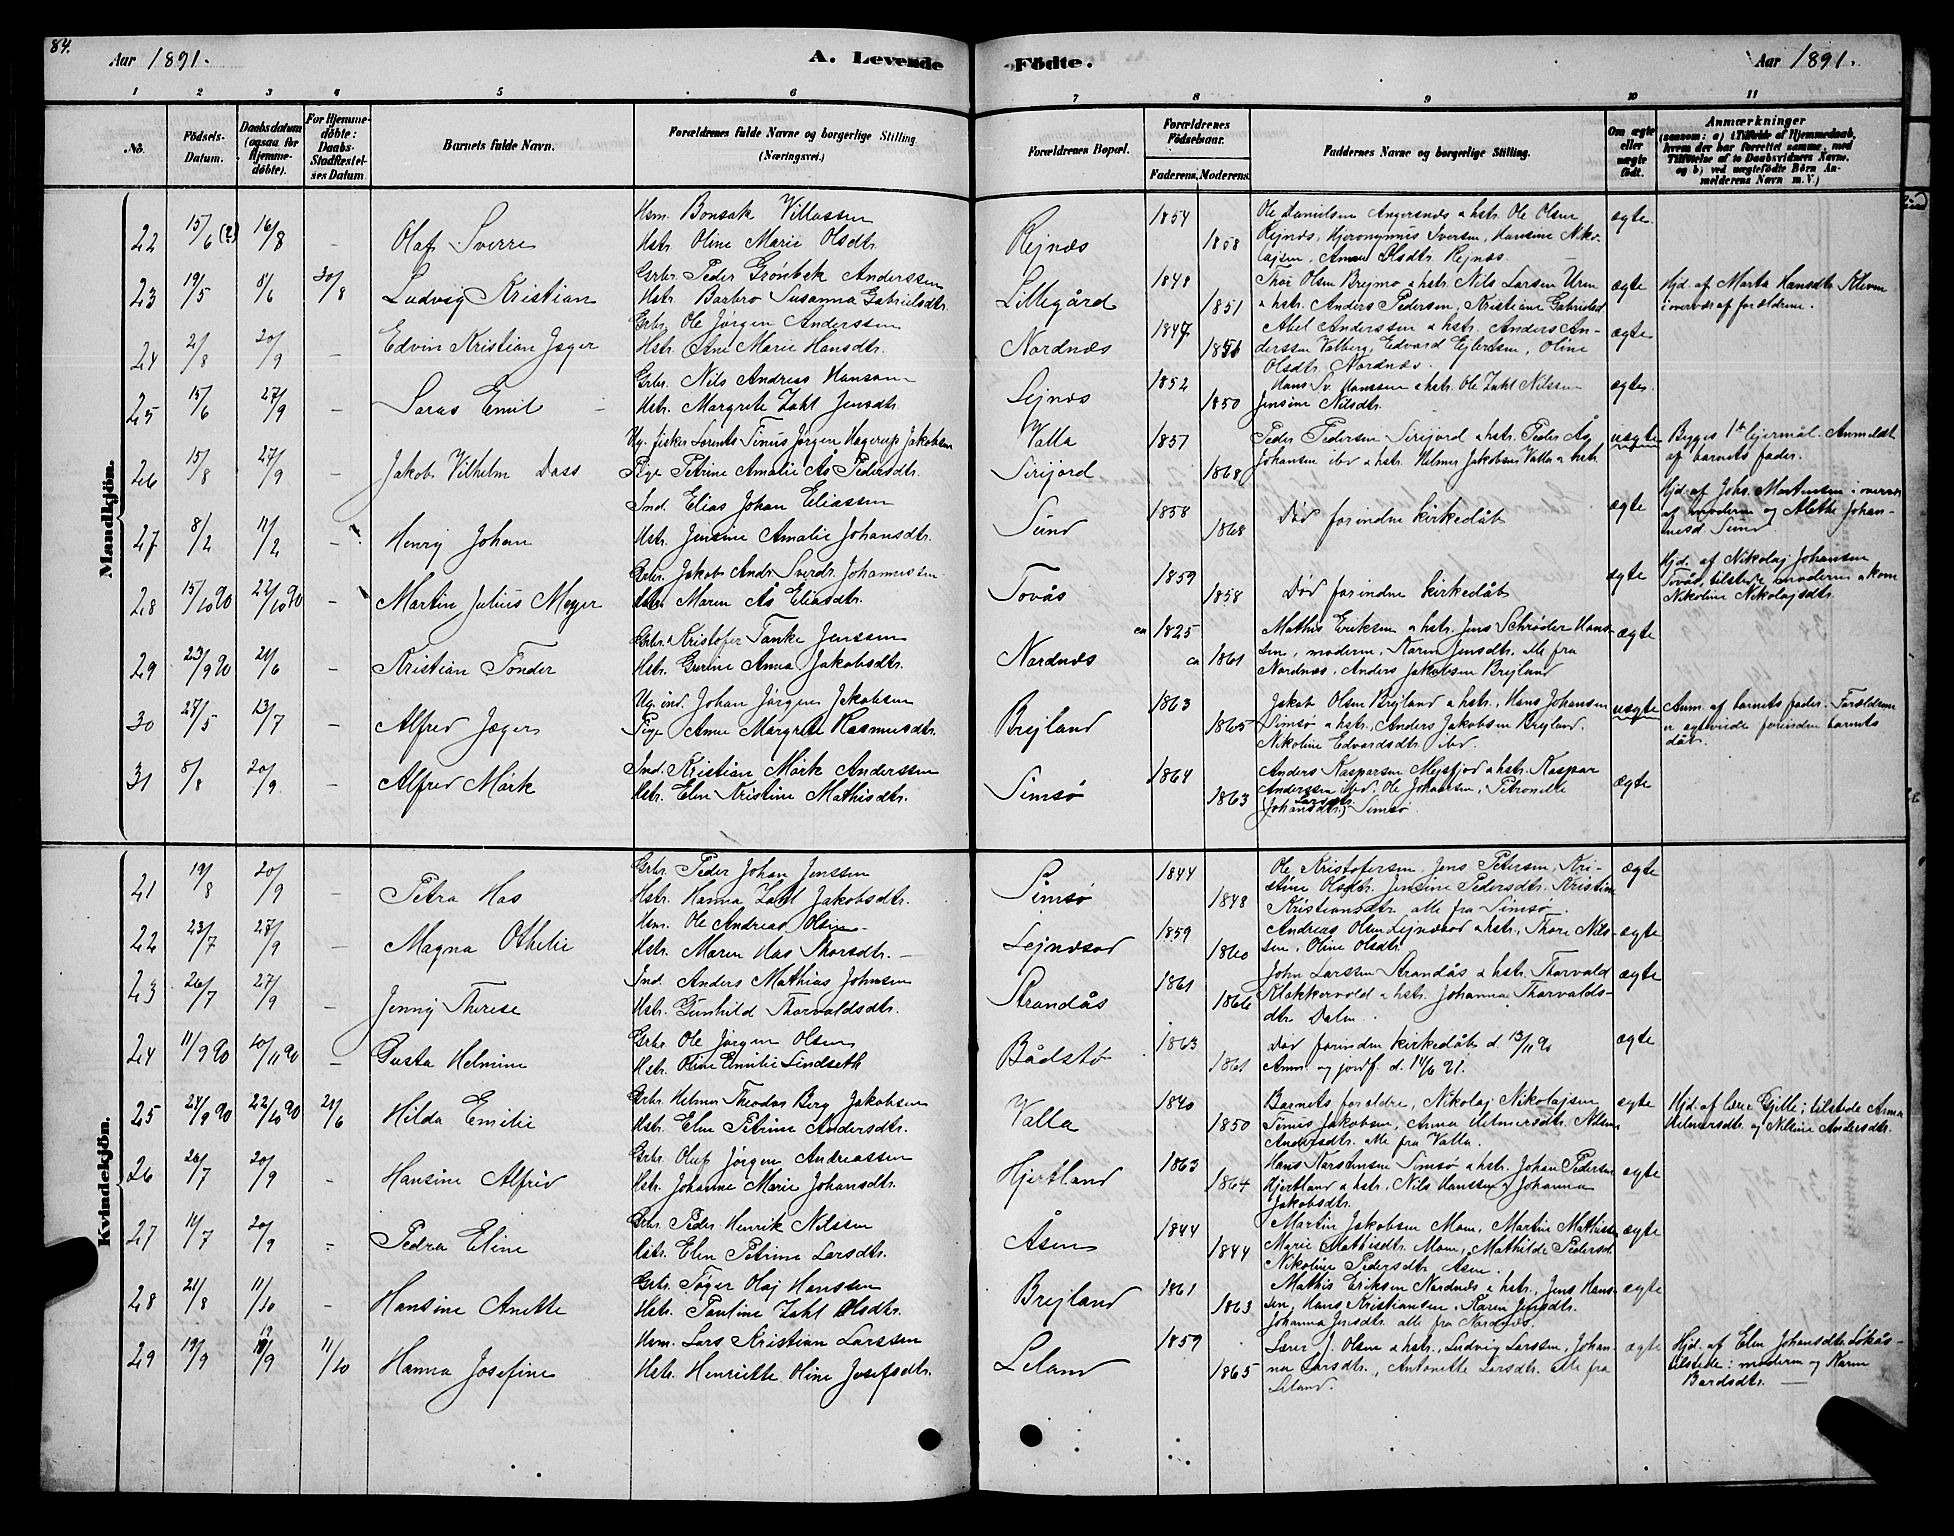 84.
Aar 1891.
A. Levende
Födte.
Aar 1891.
1 2 3 4 5 6 7 8 9 10 11
No.
Födsels-Datum.
Daabsdatum (ogsaa for Hjemmedöbte).
For Hjemmedöbte: Daabs-Stadfæstelses Datum.
Barnets fulde Navn.
Forældrenes fulde Navne og borgerlige Stilling (Næringsvei.)
Forældrenes Bopæl.
Forældrenes Födselsaar.
Faderens. Moderens.
Faddernes Navne og borgerlige Stilling.
Om ægte eller uægte födt.
Anmærkninger
(saasom: a) i Tilfælde af Hjemmedaab, hvem der har forrettet samme, med Tilföielse af to Daabsvidners Navne, og b) ved uægtefödte Börn Anmelderens Navn m. V.)
Mandkjön.
22 15/6 (?) 16/8 – Olaf Sverre
Hsm. Bonsak Villassen
Hstr. Oline Marie Olsdtr.
Rejnæs 1854 1858
Ole Danielsen Angersnæs & hstr. Ole Olsen
Rejnæs, Hjeronymus Iversen, Hansine Niko-
lajsen, Anna Olsdtr. Rejnæs. ægte.
23 19/5 8/6 30/8 Ludvig Kristian
Grbr. Peder Grönbek Anderssen
Hstr. Barbro Susanna Gabrielsdtr.
Lillegård 1848 1851
Thor Olsen Brejmo & hstr. Nils Larsen Uren
& hstr. Anders Pedersen, Kristiane Gabrielsd. ægte
Hjd. af Marta Hansdtr. Kleven
i overvær af forældrene.
24 2/8 20/9 – Edvin Kristian Jæger
Grbr. Ole Jörgen Anderssen
Hstr. Ane Marie Hansdtr.
Nordnæs 1847 1851
Abel Anderssen & hstr. Anders An-
derssen Valberg, Edvard Ejlertsen, Oline
Olsdtr. Nordnæs. ægte
25 15/6 27/9 – Saras Emil
Grbr. Nils Andreas Hansen
Hstr. Margrete Zahl Jensdtr.
Lejnæs 1852 1850
Hans Sv. Hanssen & hstr. Ole Zahl Nilssen
Jensine Nilsdtr. ægte
26 15/8 27/9 – Jakob Vilhelm Dass
Ug. fisker Lorents Tinus Jörgen Hagerup Jakobsen
Pige Petrine Amalie Ås Pedersdtr.
Valla
Sirijord 1857 1868
Peder Pedersen Sirijord & hstr. Peder Ås
Johansen ibd & hstr. Helmer Jakobsen Valla & hstr. uægte
Begges 1ste lejermål. Anmeldt
af barnets fader.
27 8/2 11/2 Henry Johan
Ind. Elias Johan Eliassen
Hstr. Jensine Amalie Johansdtr.
Sund 1858 1868
Död forinden kirkedåb ægte
Hjd. af Johs. Mortensen i overvær
af moderen og Alethe Johan-
nesd. Sund
28 15/10 90 22/10 90 – Martin Julius Meyer
Grbr. Jakob Andr. Sverdr. Johannessen
Hstr. Maren Ås Eliasdtr.
Tovås 1859 1858
Död forinden kirkedåb ægte
Hjd. af Nikolaj Johansen
Tovås, tilstede moderen & kone
Nikoline Nikolajsdtr.
29 23/9 90 21/6 – Kristian Tönder
Grbr. Kristofer Tanke Jenssen
Hstr. Gurine Anna Jakobsdtr.
Nordnæs ca 1825 ca 1861
Mathis Eriksen & hstr. Jens Schröder Hans-
sen, moderen, Karen Jensdtr. alle fra
Nordnæs. Anders Jakobsen Brejland ægte
30 27/5 13/7 – Alfred Jæger
Ug. ind. Johan Jörgen Jakobsen
Pige Anne Margrete Rasmusdtr.
Brejland 1863 1865
Jakob Olsen Brejland & hstr., Hans Johansen
Simsö & hstr. Anders Jakobsen Brejland.
Nikoline Edvardsdtr. ibd. uægte
Anm. af barnets fader. Forældrene
er ægteviede forinden barnets
dåb.
31 8/8 20/9. – Alfred Mörk
Ind. Kristian Mörk Anderssen
Hstr. Elen Kristine Mathisdtr.
Simsö 1864 1863
Anders Kasparsen Mejsfjord & hstr. Kaspar
Anderssen ibd. Ole Johansen, Petronelle
(Johansdtr.) Larsdtr. Simsö. ægte
Kvindekjön.
21 19/8 20/9 – Petra Has
Grbr. Peder Johan Jenssen
Hstr. Hanna Zahl Jakobsdtr.
Simsö 1844 1848
Ole Kristofersen, Jens Petersen, Kri-
stine Olsdtr. Jensine Pedersdtr. Kristine
Kristiansdtr. alle fra Simsö. ægte
22 23/7 27/9 – Magna Othelie
Hsm. Ole Andreas Olsen
Hstr. Maren Has Thorsdtr. –
Lejnæsod 1859 1860
Andreas Olsen Lejnæsod & hstr., Thore Nils-
sen, Oline Olsdtr. ægte
23 26/7 27/9 – Jenny Therese
Ind. Anders Mathias Johnsen
Hstr. Gunhild Thorvaldsdtr.
Strandås 1861 1866
John Larssen Strandås & hstr. Thorvald
Klokkervold & hstr. Johanna Thorvalds-
dtr. Dalen. ægte
24 11/9 90 20/11 90 – Gusta Helmine
Grbr. Ole Jörgen Olsen
Hstr. Oline Emilie Lindseth
Bådstö 1863 1861
Död forinden kirkedåb d. 13/11 90
Anm. og jordf. d. 14/6 91. ægte
25 24/9 90 22/10 90 21/6 Hilda Emilie
Grbr. Helmer Theodor Berg Jakobsen
Hstr. Elen Petrine Andersdtr.
Valla 1840 1850
Barnets forældre, Nikolaj Nikolajsen
Tinus Jakobsen, Anna Helmersdtr. Nilsine
Andersdtr. alle fra Valla. ægte
Hjd. af lærer Gjelle; tilstede Anna
Helmersdtr. og Nilsine Andersdtr.
26 26/7 20/9 – Hansine Alfrid
Grbr. Oluf Jörgen Andreassen
Hstr. Johanne Marie Johansdtr.
Hjertland 1863 1864
Hans Karstensen Simsö & hstr. Johan Pedersen
Hjertland & hstr., Nils Hanssen, Johanna
Jakobsdtr. ægte
27 11/7 20/9 – Pedra Eline
Grbr. Peder Henrik Nilssen
Hstr. Elen Petrine Larsdtr.
Åsen 1844 1844
Martin Jakobsen Moen, Martin Mathissen
Marie Mathisdtr. Moen, Mathilde Pedersd.
Nikoline Pedersdtr. Åsen. ægte
28 21/8 11/10 – Hansine Anette
Grbr. Töger Olaj Hanssen
Hstr. Pauline Zahl Olsdtr.
Brejland 1861 1863
Mathis Eriksen Nordnæs & hstr., Jens Hans-
sen, Hans Kristiansen, Karen Jensdtr.
Johanna Jensdtr. alle fra Nordnæs. ægte
29 19/9 19/9 11/10 Hanna Josefine
Hsm. Lars Kristian Larssen
Hstr. Henriette Oline Josefsdtr.
Leland 1859 1865
Lærer J. Olsen & hstr., Ludvig Larssen, Johan-
na Larsdtr., Antonette Larsdtr. alle fra
Leland. ægte
Hjd. af Elen Johansdtr. Låkås –
tilstede: moderen og Karen
Bardsdtr. –